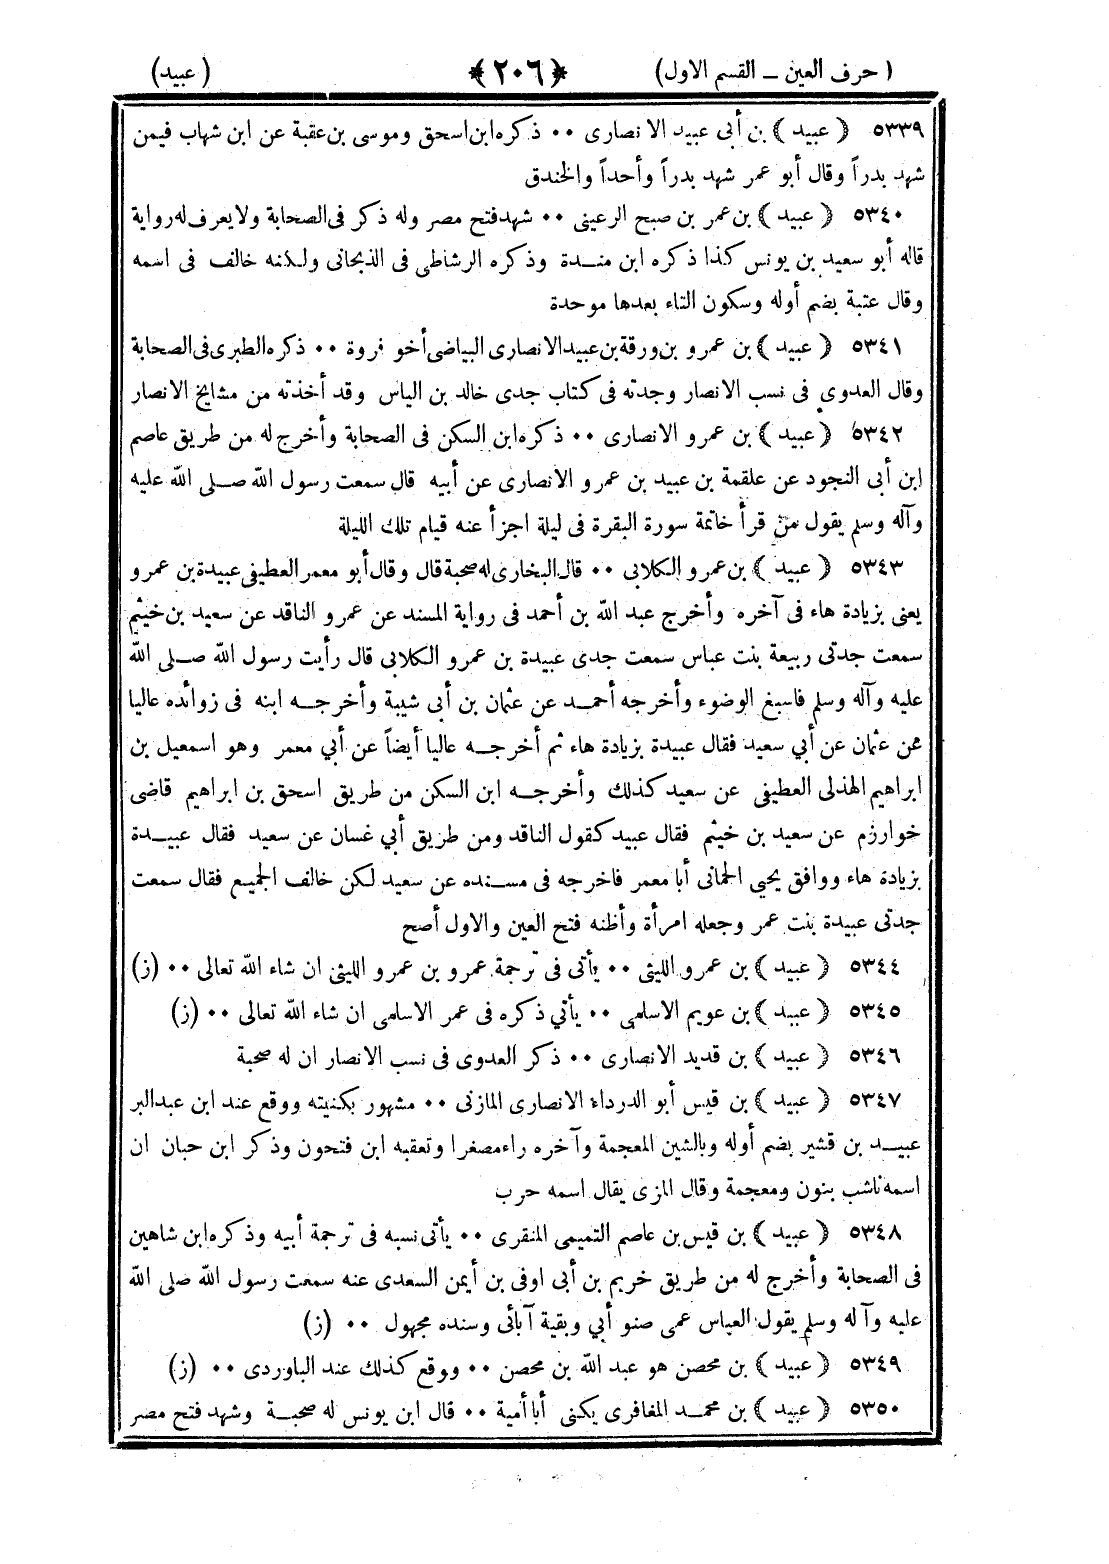 ( حرف العين ــ القسم الاول ) ﴿٢٠٦﴾ ( عبيد )
٥٣٣٩ ﴿ عبيد ﴾ بن أبى عبيد الانصارى ٠٠ ذكره ابن اسحق وموسى بن عقبة عن ابن شهاب فيمن
شهد بدراً وقال أبو عمر شهد بدراً وأحداً والخندق
٥٣٤٠ ﴿ عبيد ﴾ بن عمر بن صبح الرعينى ٠٠ شهد فتح مصر وله ذكر فى الصحابة ولا يعرف له رواية
قاله أبو سعيد بن يونس كذا ذكره ابن منـدة وذكره الرشاطى فى الذبحانى ولكنه خالف فى اسمه
وقال عتبة بضم أوله وسكون التاء بعدها موحدة
٥٣٤١ ﴿ عبيد ﴾ بن عمرو بن ورقة بن عبيد الانصارى البياضى أخو فروة ٠٠ ذكره الطبرى فى الصحابة
وقال العدوى فى نسب الانصار وجدته فى كتاب جدى خالد بن الياس وقد أخذته من مشايخ الانصار
٥٣٤٢ ﴿ عبيد ﴾ بن عمرو الانصارى ٠٠ ذكره ابن السكن فى الصحابة وأخرج له من طريق عاصم
ابن أبى النجود عن علقمة بن عبيد بن عمرو الانصارى عن أبيه قال سمعت رسول الله صـلى الله عليه
وآله وسلم يقول من قرأ خاتمة سورة البقرة فى ليلة اجزأ عنه قيام تلك الليلة
٥٣٤٣ ﴿ عبيد ﴾ بن عمرو الكلابى ٠٠ قال البخارى له صحبة قال وقال أبو معمر العطيفى عبيدة بن عمرو
يعنى بزيادة هاء فى آخره وأخرج عبد الله بن أحمد فى رواية المسند عن عمرو الناقد عن سعيد بن خيثم
سمعت جدتى ربيعة بنت عباس سمعت جدى عبيدة بن عمرو الكلابى قال رأيت رسول الله صـلى الله
عليه وآله وسلم فاسبغ الوضوء وأخرجه أحمـد عن عثمان بن أبى شيبة وأخرجـه ابنه فى زوائده عاليا
عن عثمان عن أبي سعيد فقال عبيدة بزيادة هاء ثم أخرجـه عاليا أيضاً عن أبي معمر وهو اسمعيل بن
ابراهيم الهذلى العطيفى عن سعيد كذلك وأخرجـه ابن السكن من طريق اسحق بن ابراهيم قاضى
خوارزم عن سعيد بن خيثم فقال عبيد كقول الناقد ومن طريق أبي غسان عن سعيد فقال عبيـدة
بزيادة هاء ووافق يحيي الحمانى أبا معمر فاخرجه فى مسـنده عن سعيد لكن خالف الجميـع فقال سمعت
جدتى عبيدة بنت عمر وجعله امرأة وأظنه فتح العين والاول أصح
٥٣٤٤ ﴿ عبيد ﴾ بن عمرو الليثى ٠٠ يأتى فى ترجمة عمرو بن عمرو الليثى ان شاء الله تعالى ٠٠ (ز)
٥٣٤٥ ﴿ عبيد ﴾ بن عويم الاسلمى ٠٠ يأتي ذكره فى عمر الاسلمى ان شاء الله تعالى ٠٠ (ز)
٥٣٤٦ ﴿ عبيد ﴾ بن قديد الانصارى ٠٠ ذكر العدوى فى نسب الانصار ان له صحبة
٥٣٤٧ ﴿ عبيد ﴾ بن قيس أبو الدرداء الانصارى المازنى ٠٠ مشهور بكنيته ووقع عند ابن عبدالبر
عبيـد بن قشير بضم أوله وبالشين المعجمة وآخره راء مصغرا وتعقبه ابن فتحون وذكر ابن حبان ان
اسمه ناشب بنون ومعجمة وقال المزى يقال اسمه حرب
٥٣٤٨ ﴿ عبيد ﴾ بن قيس بن عاصم التميمى المنقرى ٠٠ يأتى نسبه فى ترجمة أبيه وذكره ابن شاهين
فى الصحابة وأخرج له من طريق خريم بن أبى اوفى بن أيمن السعدى عنه سمعت رسول الله صلى الله
عليه وآله وسلم يقول العباس عمى صنو أبي وبقية آبائى وسنده مجهول ٠٠ (ز)
٥٣٤٩ ﴿ عبيد ﴾ بن محصن هو عبد الله بن محصن ٠٠ ووقع كذلك عند الباوردى ٠٠ (ز)
٥٣٥٠ ﴿ عبيد ﴾ بن محمـد المغافرى يكنى أبا أمية ٠٠ قال ابن يونس له صحبـة وشهد فتح مصر